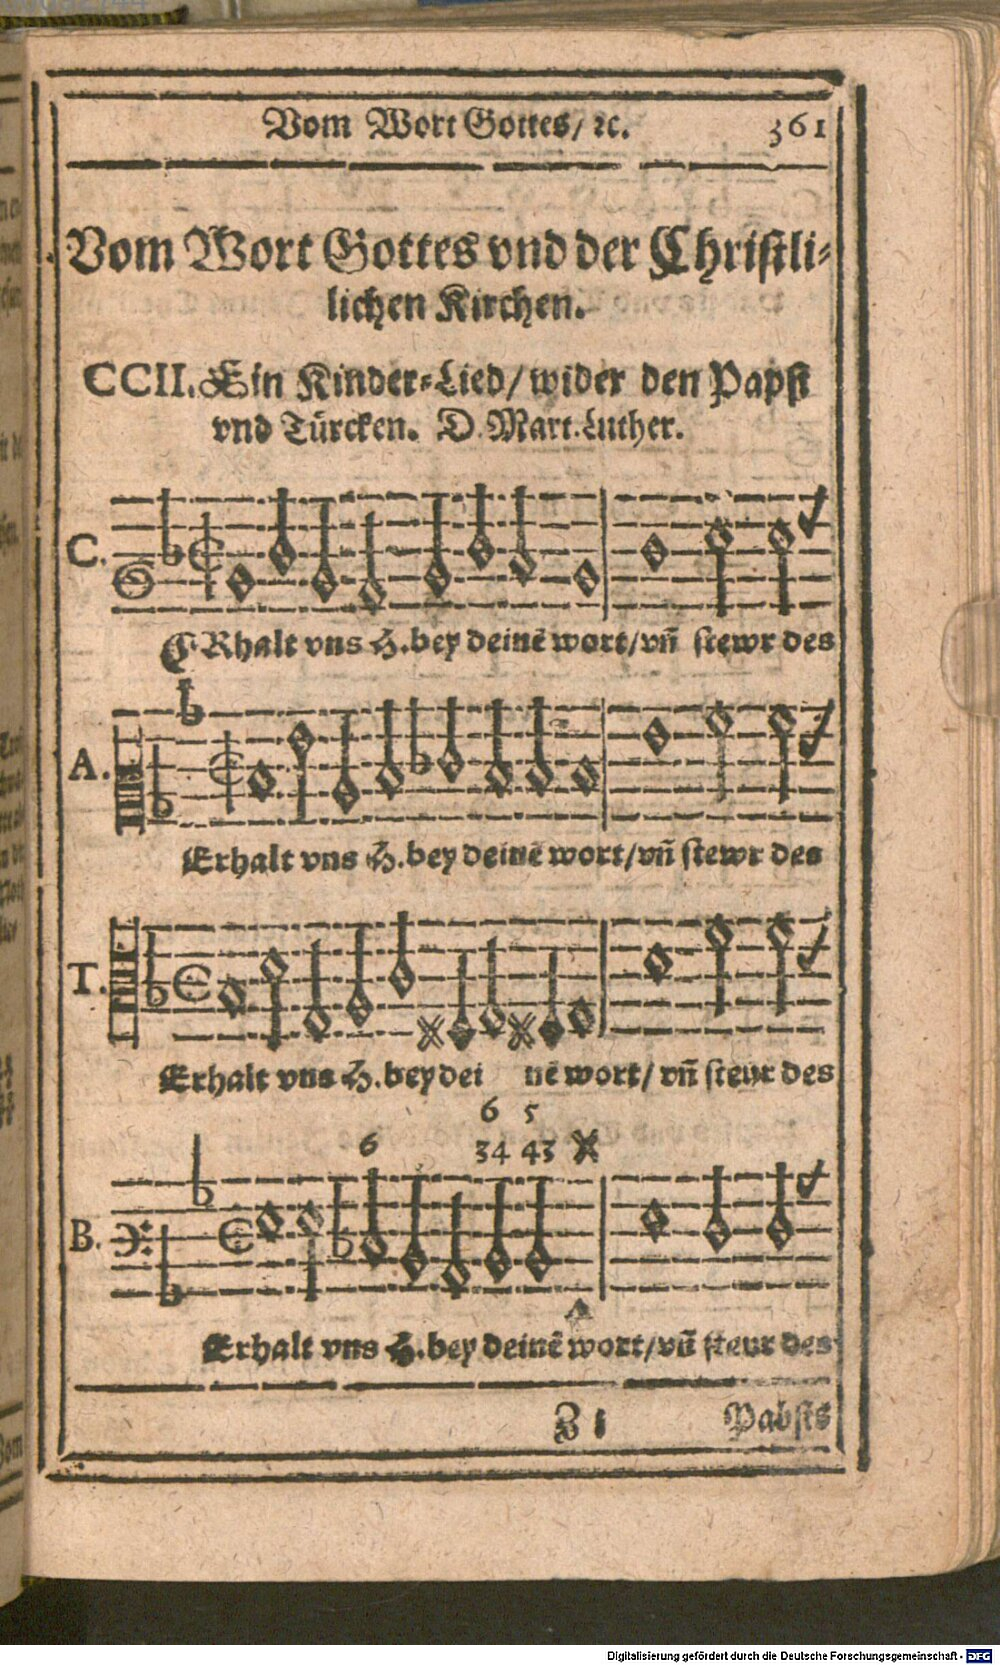 Vom Wort Gottes/ ꝛc. 361
Vom Wort Gottes vnd der Christli-
lichen Kirchen.
CCII. Ein Kinder-Lied/ wider den Papst
vnd Türcken. D. Mart. Luther.
C.
ERhalt vns H. bey deinē wort/ vn̄ stewr des
A.
Erhalt vns H. bey deinē wort/ vn̄ stewr des
T.
Erhalt vns H. bey dei nē wort/ vn̄ steur des
6 5
6 34 43
B.
Erhalt vns H. bey deinē wort/ vn̄ steur des
Z 1 Pabsts
Digitalisierung gefördert durch die Deutsche Forschungsgemeinschaft - DFG